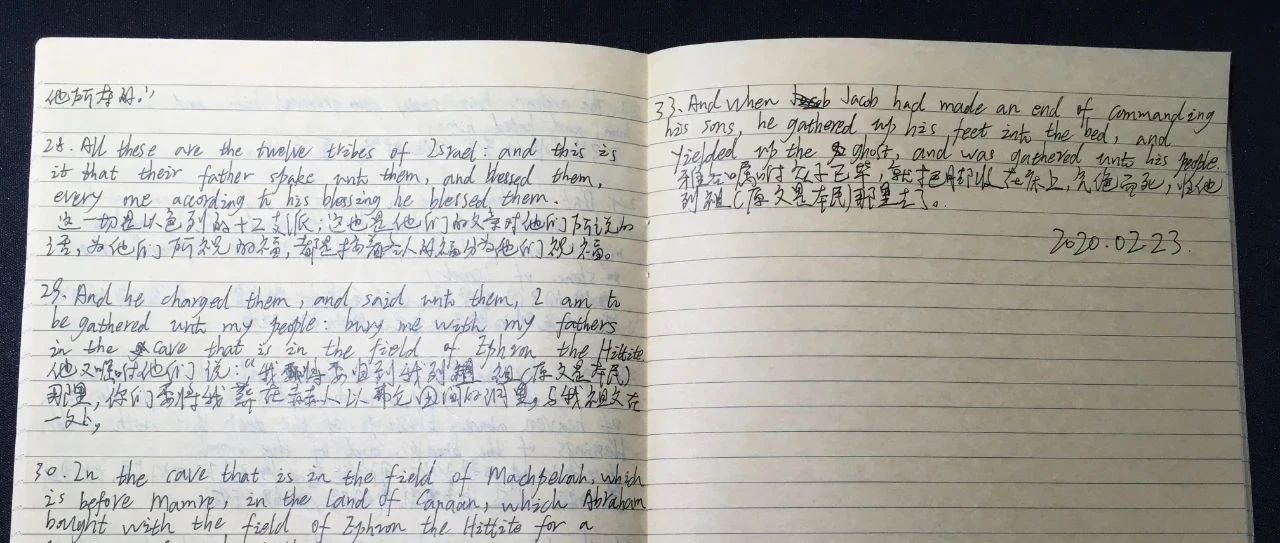 他所夺的。”
28. All these are the twelve tribes of Israel: and this is
it that their father spake unto them, and blessed them,
every one according to his blessing he blessed them.
这一切是以色列的十二支派；这也是他们的父亲对他们所说的
话，为他们所祝的福，都是按着各人的福分为他们祝福。
29. And he charged them, and said unto them, I am to
be gathered unto my people: bury me with my fathers
in the cave that is in the field of Ephron the Hittite
他又嘱咐他们说：“我将要归到我列祖（原文是本民）
那里，你们要将我葬在赫人以弗仑田间的洞里，与我祖父在
一处，
30. In the cave that is in the field of Machpelah, which
is before Mamre, in the land of Canaan, which Abraham
bought with the field of Ephron the Hittite for a
33. And when Jacob had made an end of commanding
his sons, he gathered up his feet into the bed, and
yielded up the ghost, and was gathered unto his people.
雅各嘱咐众子已毕，就把脚收在床上，气绝而死，归他
列祖（原文是本民）那里去了。
2020.02.23.